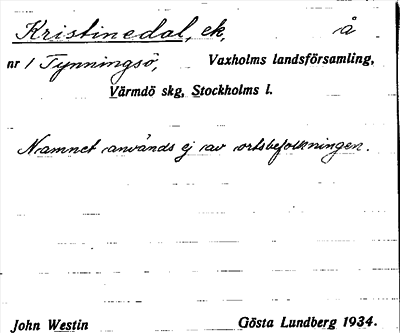 Kristinedal, ek, å
nr 1 Tynningsö, Vaxholms landsförsamling,
Värmdö skg, Stockholms l.
Namnet används ej av ortsbefolkningen.
John Westin Gösta Lundberg 1934.